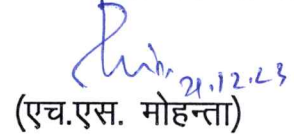 21.12.23
(एच.एस. मोहन्ता)